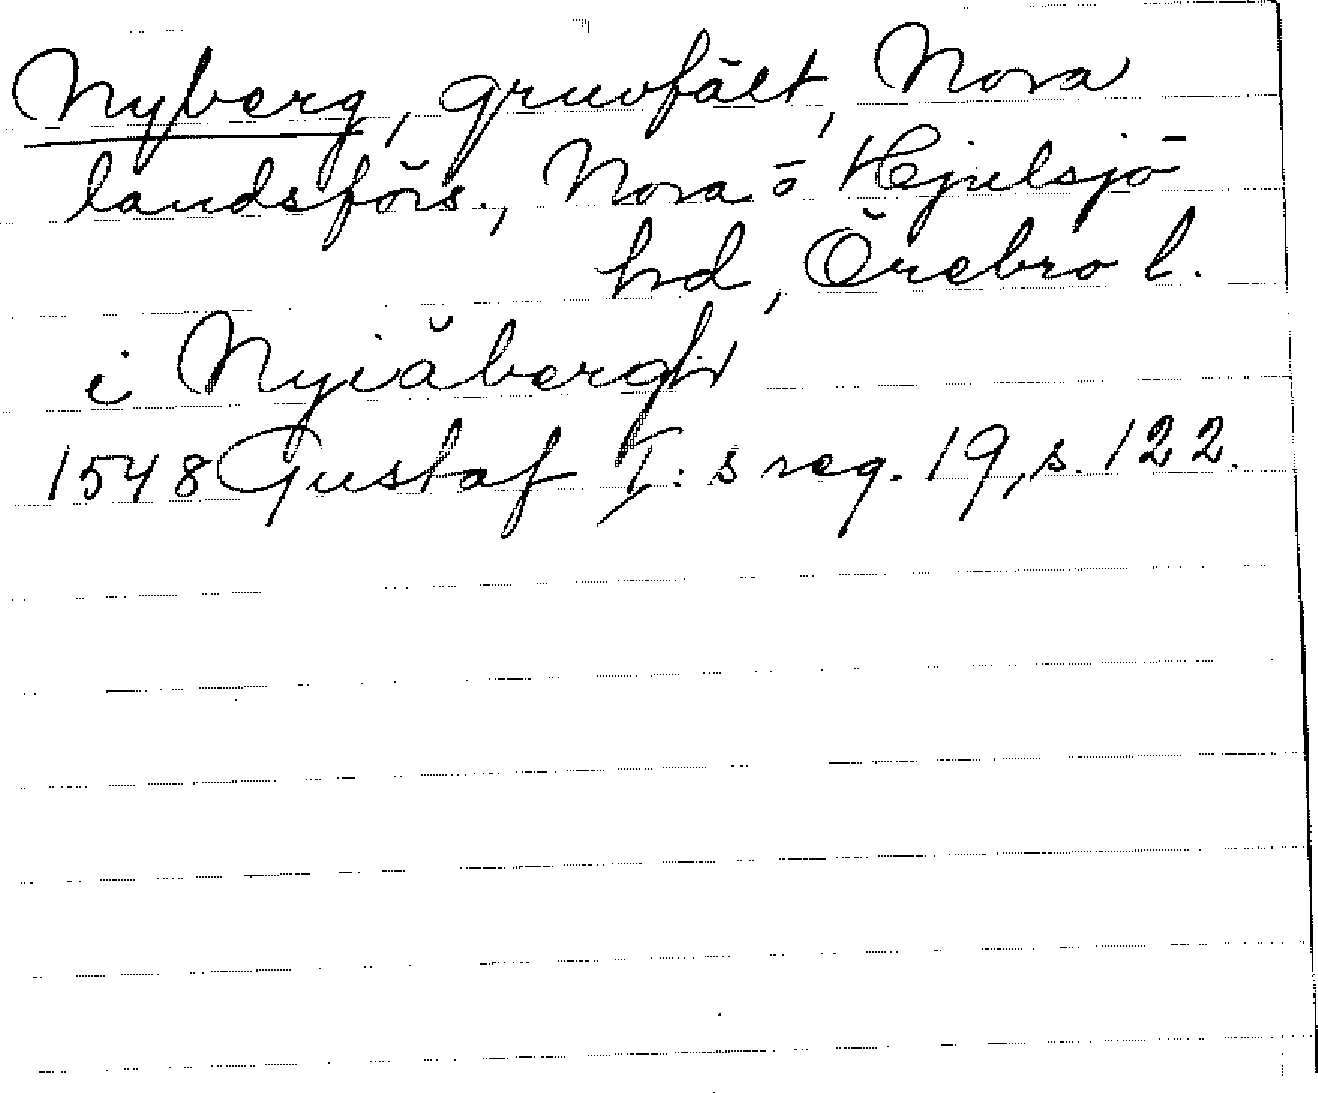 Nyberg, gruvfält, Nora
landsförs., Nora o Hjulsjö
hd, Örebro l.
i Nyiåbergh
1548 Gustaf I:s reg. 19, s. 122.